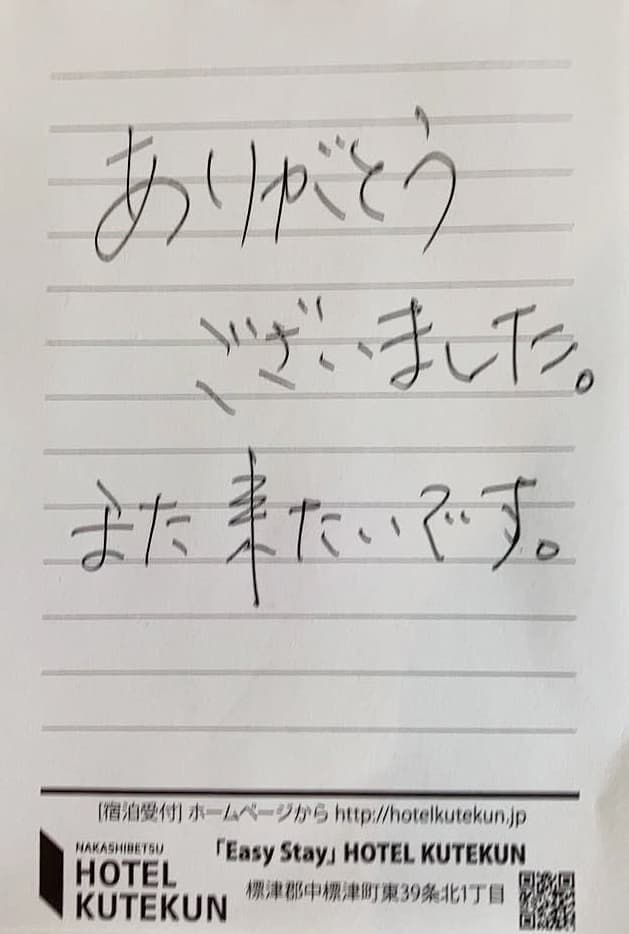 ありがとう
ございました。
また来たいです。
[宿泊受付] ホームページから http://hotelkutekun.jp
NAKASHIBETSU
HOTEL
KUTEKUN
「Easy Stay」 HOTEL KUTEKUN
標津郡中標津町東39条北1丁目